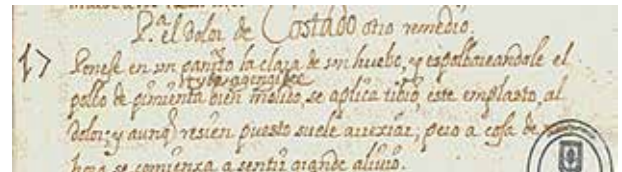 P.ª el Dolor de Costado otro remedio.
Ponese en un pañito la clara de un huebo, y espolboreandole el
polbo de pimienta bien molido, se aplica tibio, este emplasto, al
dolor; y aunq̃ resien puesto suele arreziar, pero a cosa de
hora se comienza a sentir grande aliuio.